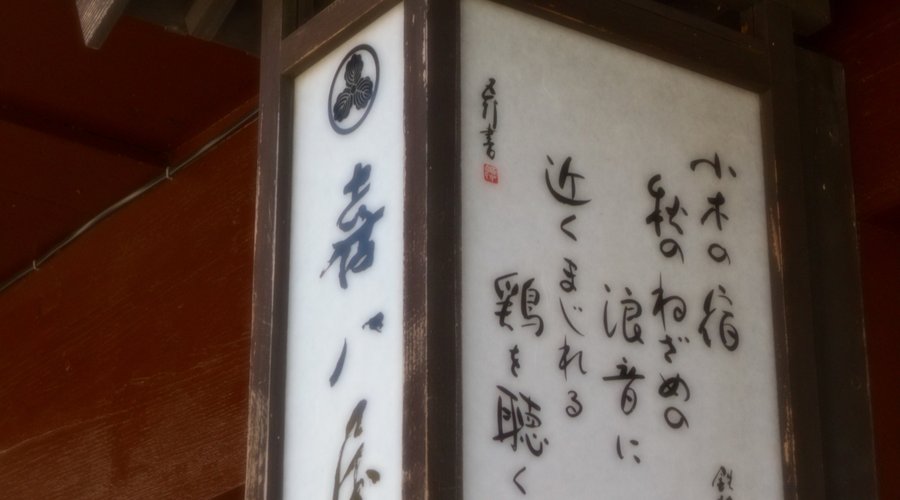 嘉八屋
小木の宿
秋のねざめの
浪音に
近くまじれる
鶏を聴く